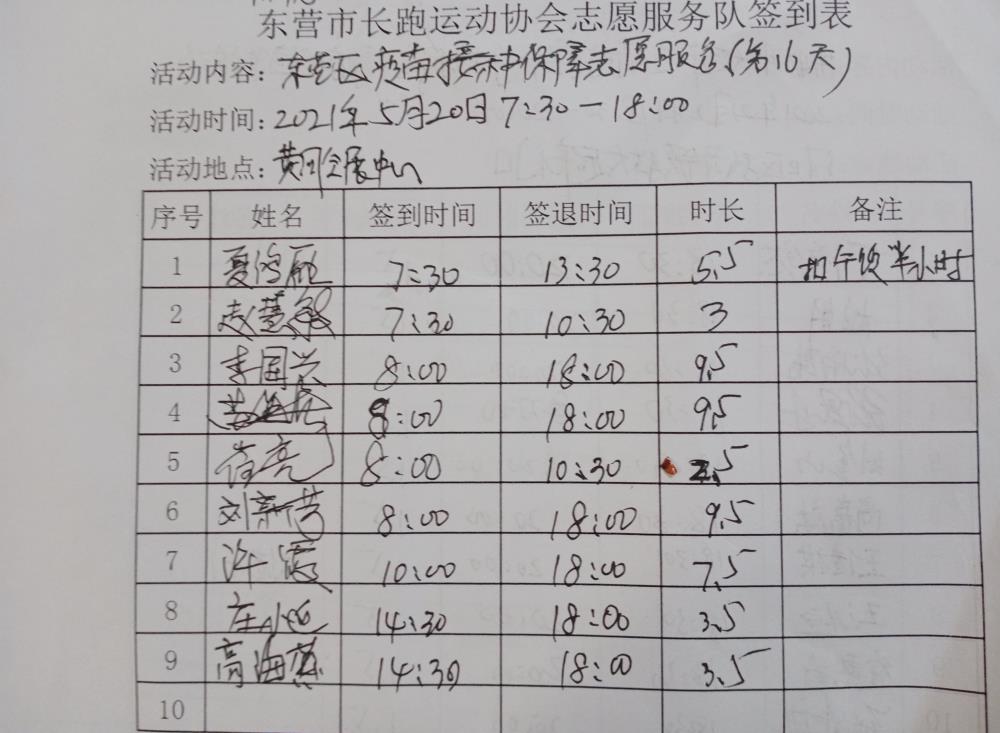 东营市长跑运动协会志愿服务队签到表
活动内容:东营区疫苗接种保障志愿服务(第16天)
活动时间:2021年5月20日7:30—18:00
活动地点:黄河会展中心
序号 姓名 签到时间 签退时间 时长 备注
1 夏鸿雁 7:30 13:30 5.5 扣午饭半小时
2 赵慧敏 7:30 10:30 3
3 李国兴 8:00 18:00 9.5
4 8:00 18:00 9.5
5 亮 8:00 10:30 2.5
6 刘新 8:00 18:00 9.5
7 许霞 10:00 18:00 7.5
8 庄 14:30 18:00 3.5
9 高海燕 14:30 18:00 3.5
10